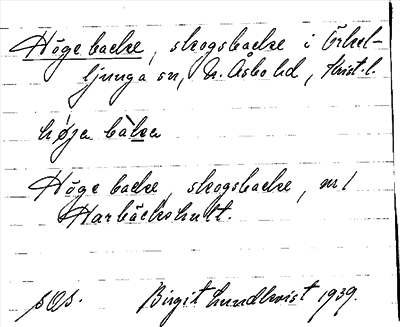 Höge backe, skogsbacke i Örkel-
ljunga sn, N. Åsbo hd, Krist. l.
højа bàka
Höge backe, skogsbacke, nr 1
Harbäckshult.
Birgit Lundkvist 1939.